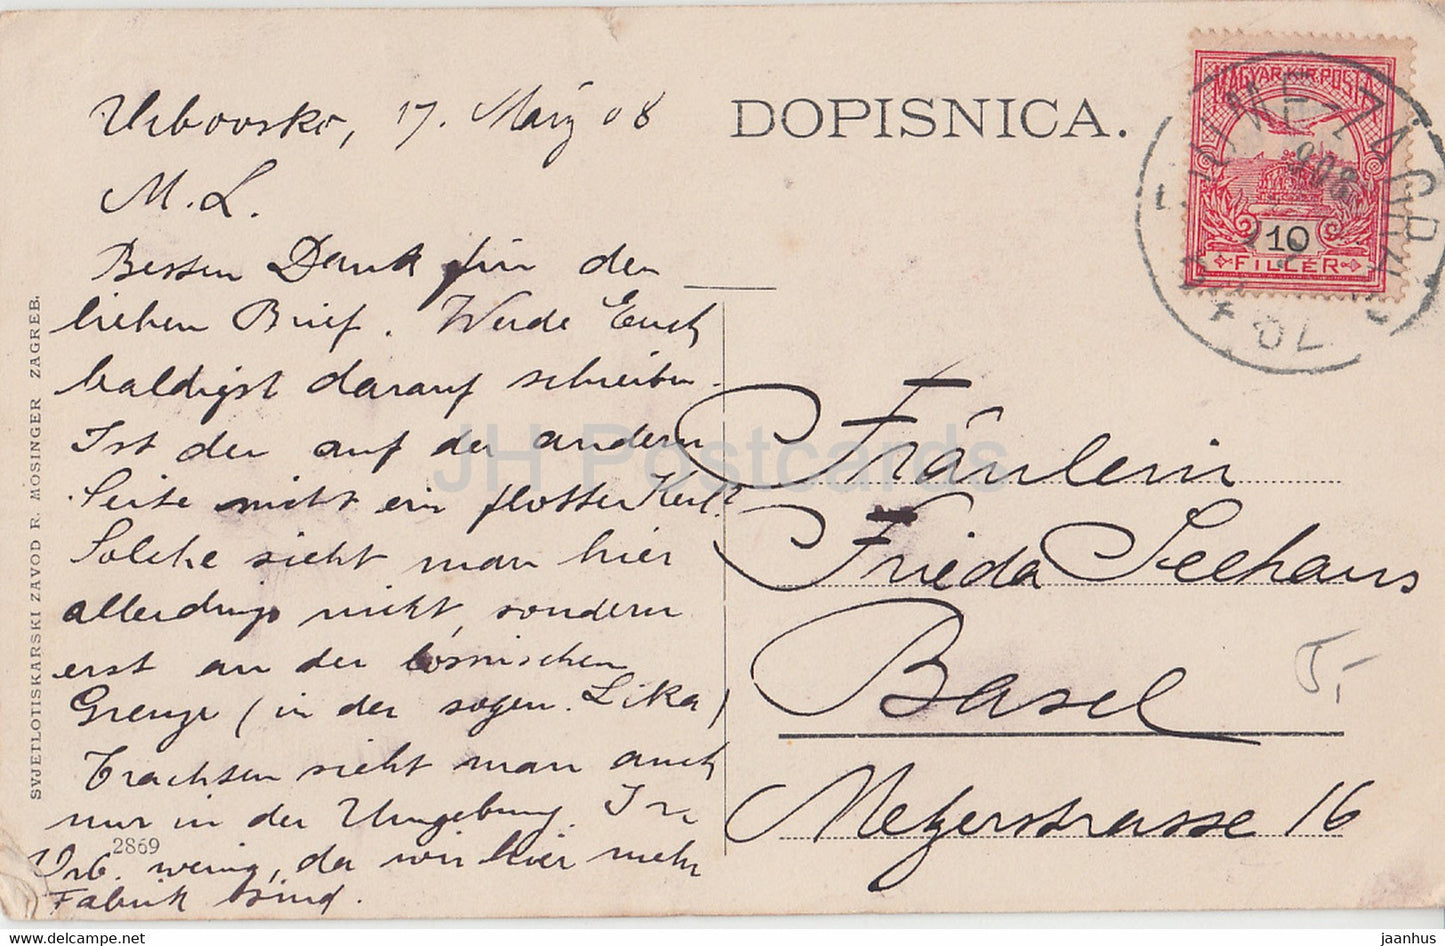 DOPISNICA.
Vrbovsko, 17. März 08
M. L.
Besten Dank für den
lieben Brief. Werde Euch
baldigst darauf schreiben.
Ist der auf der andern
Seite nicht ein flotter Kerl?
Solche sieht man hier
allerdings nicht, sondern
erst an der bosnischen
Grenze (in der sogen. Lika)
Trachten sieht man auch
nur in der Umgebung. In
Vrb. wenig, da wir hier mehr
Fabrik sind.
Fräulein
Frieda Seehaus
Basel
Metzerstrasse 16
MAGYAR KIR. POSTA
10
FILLÉR
FIUME-ZÁGRÁB
908
70
5,-
SVJETLOTISKARSKI ZAVOD R. MOSINGER ZAGREB.
2869
JH Postcards
www.delcampe.net
jaanhus